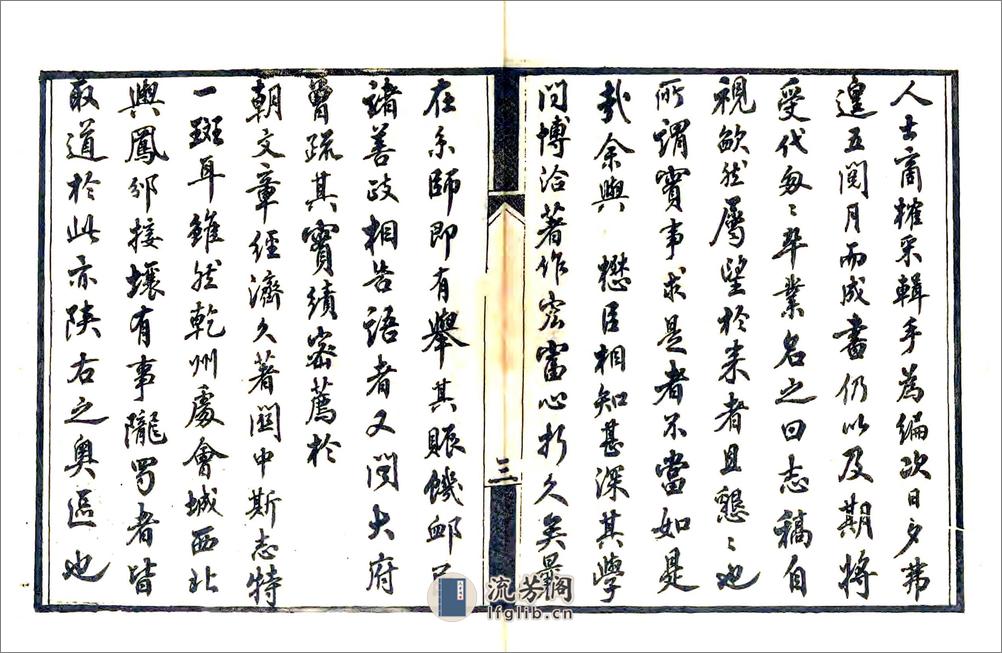 人士商榷采輯手為編次日夕弗
遑五閱月而成書仍以及期將
受代匆匆卒業名之曰志稿自
視欿然屬望於来者且懇〻也
所謂實事求是者不當如是
哉余與 懋臣相知甚深其學
问博洽著作宏富心折久矣
在京師即有舉其賑饑卹
諸善政相告語者又闻大府
嘗疏其實績密薦於
朝文章經濟久著関中斯志特
一斑耳雖然乾州處會城西北
與鳳邠接壤有事隴蜀者皆
取道於此亦陕右之奥區也
三
流芳阁
lfglib.cn